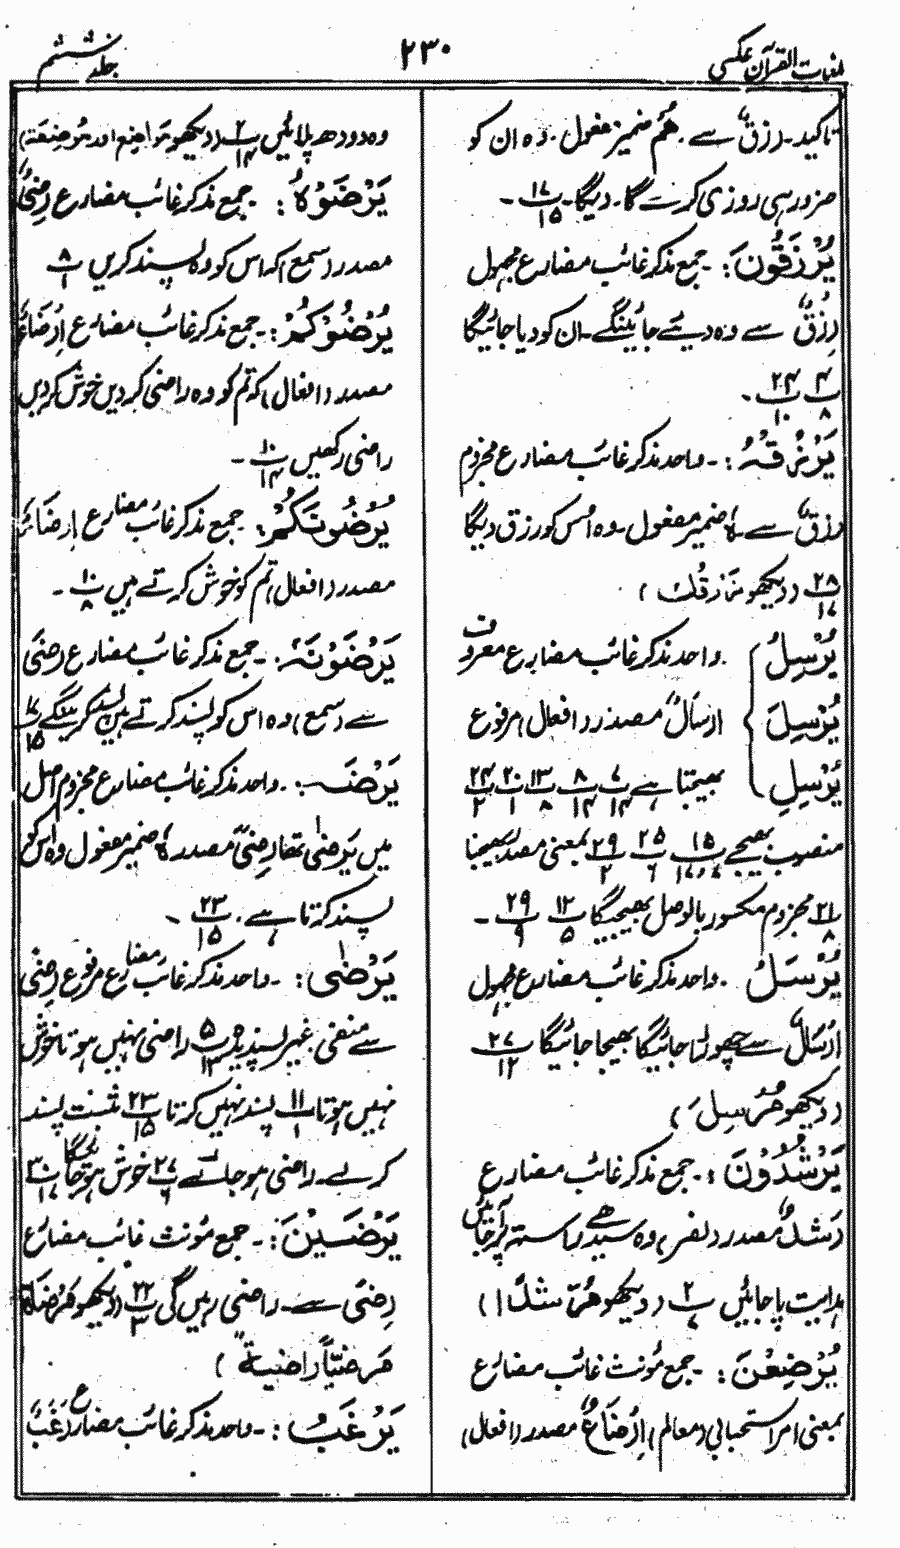 لغات القرآن عکسی
۲۳۰
جلد ششم
تاکید۔ رِزْقٌ سے۔ ھُمْ ضمیر مفعول۔ وہ ان کو
ضرور ہی روزی کرنے گا۔ دیگا۔ ۱۷/۱۵ ۔
یُرْزَقُوْنَ :۔ جمع مذکر غائب مضارع مجہول
رِزْقٌ سے وہ دیئے جائینگے۔ ان کو دیا جائیگا
۴/۸ ۲۴/۱۰ ۔
یَرْزُقْہُ :۔ واحد مذکر غائب مضارع مجزوم
رِزْقٌ سے۔ ہٗ ضمیر مفعول۔ وہ اُس کو رزق دیگا
۲۸/۱۷ (دیکھو نَرْزُقُكَ)
یُرْسِلُ واحد مذکر غائب مضارع معروف
یُرْسِلَ اِرْسَالٌ مصدر (افعال) مرفوع
یُرْسِلِ بھیجتا ہے ۷/۱۴ ۸/۱۴ ۱۳/۸ ۲۰/۱ ۲۴/۲
منصوب بھیجے ۱۵/۷،۱۷ ۲۵/۶ ۲۹/۲ بمعنی مصدر بھیجنا
۲۱/۸ مجزوم مکسور بالوصل بھیجیگا ۱۲/۵ ۲۹/۹ ۔
یُرْسَلُ ۔ واحد مذکر غائب مضارع مجہول
اِرْسَالٌ سے چھوڑا جائیگا بھیجا جائیگا ۲۷/۱۲
(دیکھو مُرْسِلَ)
یَرْشُدُوْنَ :۔ جمع مذکر غائب مضارع
رُشْدٌ مصدر (نصر) وہ سیدھے راستہ پر آجائیں
ہدایت پا جائیں ۲/۷ (دیکھو مُرْشِدًا)
یُرْضِعْنَ :۔ جمع مؤنث غائب مضارع
بمعنی امر استحبابی (معالم) اِرْضَاعٌ مصدر (افعال)
وہ دودھ پلائیں ۲/۱۴ (دیکھو مَرَاضِع اور مُرْضِعَة)
یَرْضَوْہُ :۔ جمع مذکر غائب مضارع رِضًی
مصدر (سمع) کہ اس کو وہ پسند کریں ۸/۱
یُرْضُوْكُمْ :۔ جمع مذکر غائب مضارع اِرْضَاءٌ
مصدر (افعال) کہ تم کو وہ راضی کر دیں خوش کر دیں
راضی رکھیں ۱۰/۱۴ ۔
یُرْضُوْنَكُمْ : جمع مذکر غائب مضارع اِرْضَاءٌ
مصدر (افعال) تم کو خوش کرتے ہیں ۱۰/۸ ۔
یَرْضَوْنَہٗ :۔ جمع مذکر غائب مضارع رِضًی
سے (سمع) وہ اس کو پسند کرتے ہیں پسند کریںگے ۱۷/۱۵
یَرْضَہُ :۔ واحد مذکر غائب مضارع مجزوم اصل
میں یَرْضٰی تھا رِضًی مصدر ہٗ ضمیر مفعول وہ اس کو
پسند کرتا ہے۔ ۲۳/۱۵ ۔
یَرْضٰی :۔ واحد مذکر غائب مضارع مرفوع رِضًی
سے منفی غیر پسندیدہ ۵/۱۴ راضی نہیں ہوتا خوش
نہیں ہوتا ۱۱/۱ پسند نہیں کرتا ۲۳/۱۵ مثبت پسند
کر لے۔ راضی ہو جائے ۲۷/۶ خوش ہو جائیگا ۳۰/۱۷
یَرْضَیْنَ :۔ جمع مؤنث غائب مضارع
رِضًی سے۔ راضی رہیں گی ۲۲/۳ (دیکھو مَرْضَاة
مَرْضِیًّا رَاضِیَة)
یَرْغَبُ :۔ واحد مذکر غائب مضارع رَغَبٌ